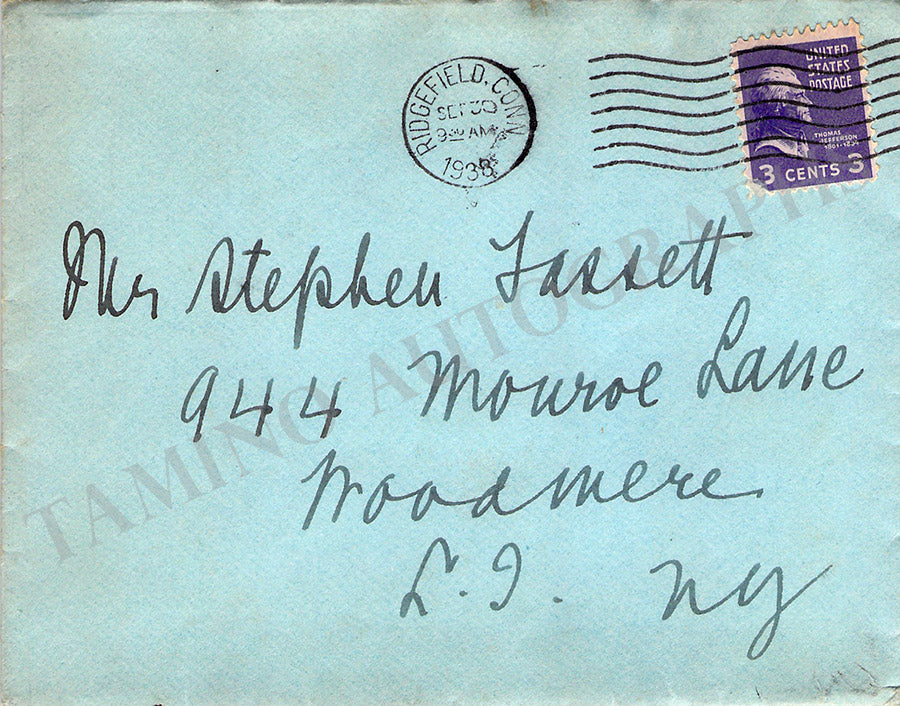 RIDGEFIELD, CONN.
SEP 30
9 30 AM
1938
UNITED
STATES
POSTAGE
THOMAS
JEFFERSON
1801-1809
3 CENTS 3
Mr Stephen Fassett
944 Monroe Lane
Woodmere
L. I. NY
TAMINO AUTOGRAPHS